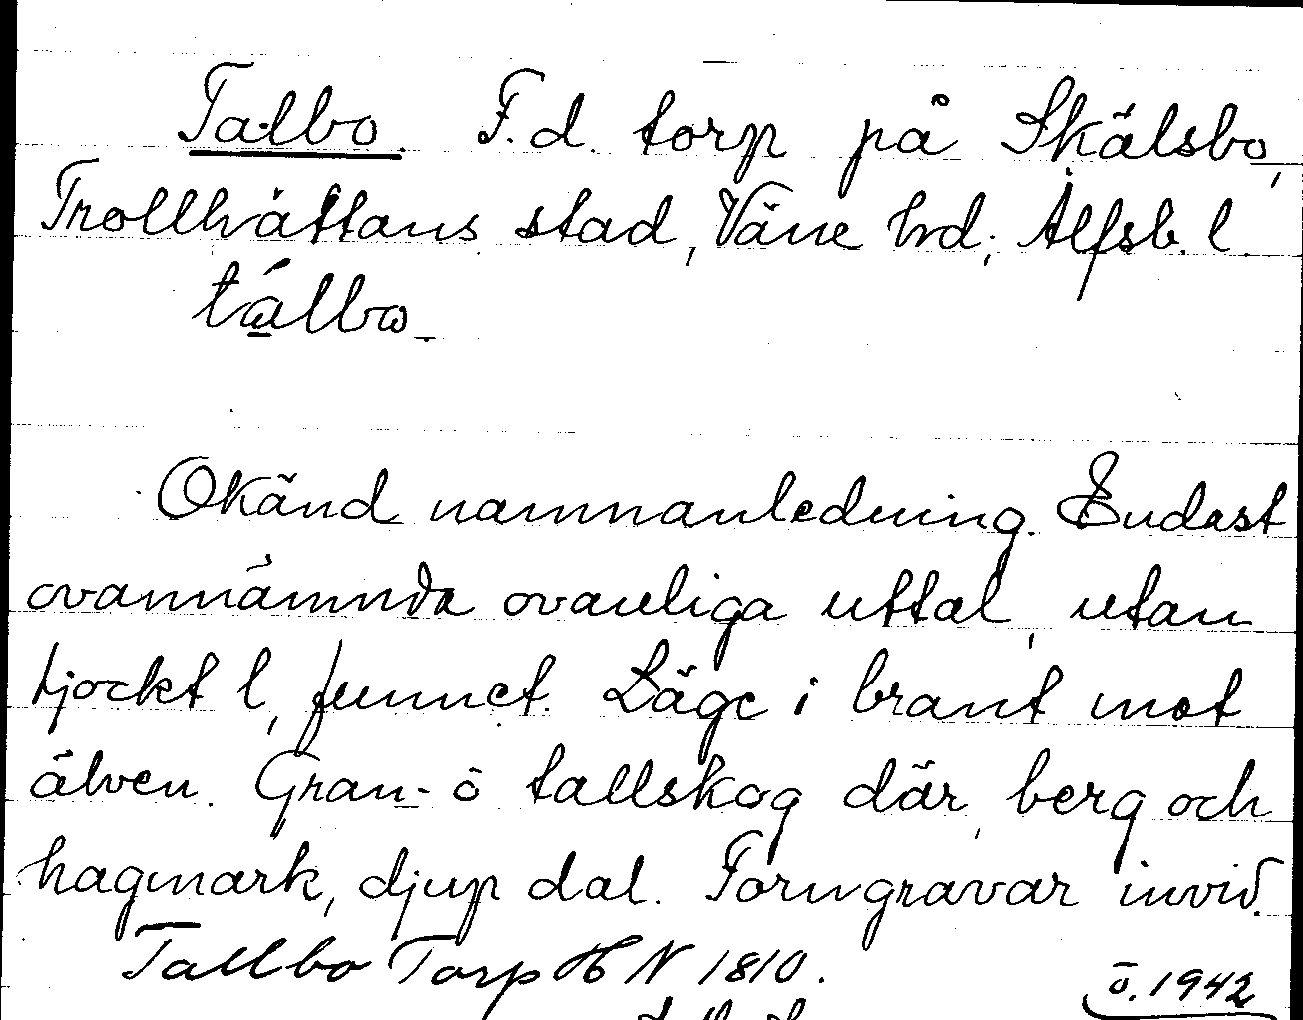 Talbo. F.d. torp på Skälsbo,
Trollhättans stad, Väne hd; Älfsb. l.
tálbo.
Okänd namnanledning. Endast
ovannämnda ovanliga uttal, utan
tjockt l, funnet. Läge i brant mot
älven. Gran- o tallskog där, berg och
hagmark, djup dal. Forngravar invid.
Tallbo Torp HN 1810.
ö. 1942